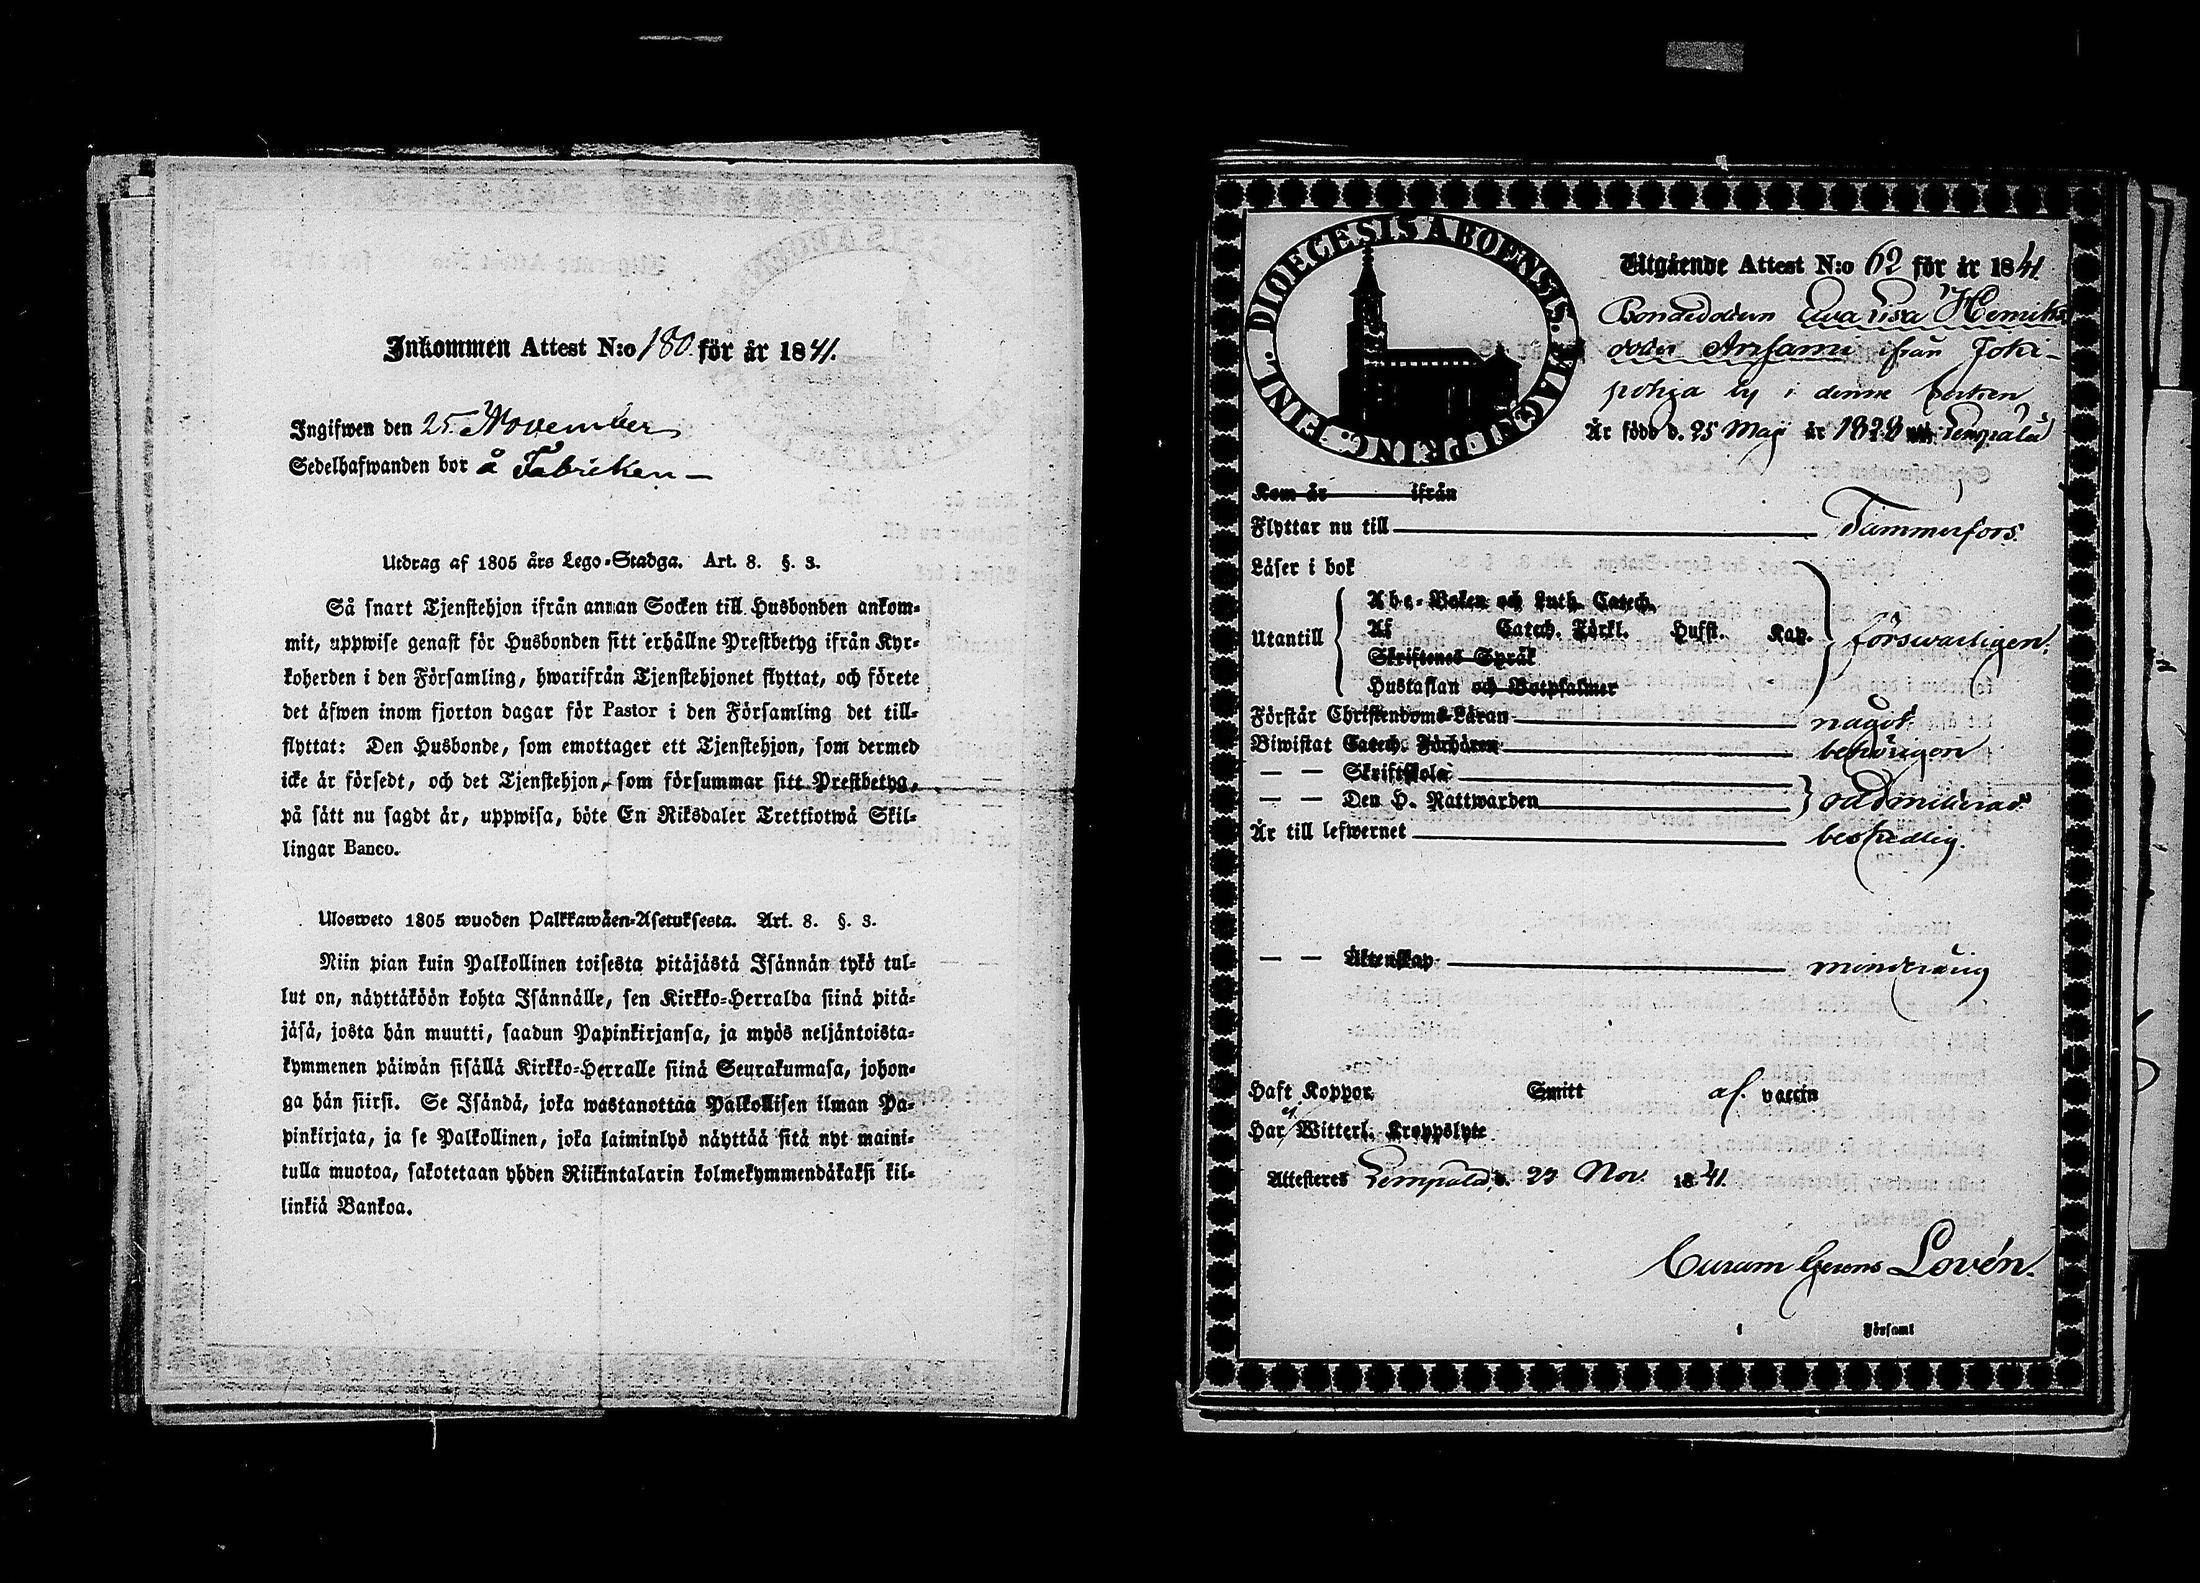 Inkommen Attest N:o 180. för år 1841.
Ingifwen den 25. November
Sedelhafwanden bor å Fabriken –
Utdrag af 1805 års Lego-Stadga. Art. 8. §. 3.
Så snart Tjenstehjon ifrån annan Socken till Husbonden ankom-
mit, uppwise genast för Husbonden sitt erhållne Prestbetyg ifrån Kyr-
koherden i den Församling, hwarifrån Tjenstehjonet flyttat, och förete
det äfwen inom fjorton dagar för Pastor i den Församling det till-
flyttat: Den Husbonde, som emottager ett Tjenstehjon, som dermed
icke är försedt, och det Tjenstehjon, som försummar sitt Prestbetyg,
på sätt nu sagdt är, uppwisa, böte En Riksdaler Trettiotwå Skil-
lingar Banco.
Ulosweto 1805 wuoden Palkkawäen-Asetuksesta. Art. 8. §. 3.
Niin pian kuin Palkollinen toisesta pitäjästä Isännän tykö tul-
lut on, näyttäköön kohta Isännälle, sen Kirkko-Herralda siinä pitä-
jäsä, josta hän muutti, saadun Papinkirjansa, ja myös neljäntoista-
kymmenen päiwän sisällä Kirkko-Herralle siinä Seurakunnasa, johon-
ga hän siirsi. Se Isändä, joka wastanottaa Palkollisen ilman Pa-
pinkirjata, ja se Palkollinen, joka laiminlyö näyttää sitä nyt maini-
tulla muotoa, sakotetaan yhden Riikintalarin kolmekymmendäkaksi kil-
linkiä Bankoa.
DIOECESIS ABOENSIS. MAGNI PRINC. FINL.
Utgående Attest N:o 62 för år 1841.
Bondedottern Ewa Lisa Henriks
dotter Anjami ifrån Joki-
pohja by i denna Socken
Är född d. 25 Maji år 1828 uti Lempälä
Kom år ifrån
Flyttar nu till Tammerfors.
Läser i bok
Utantill
Abc-Boken och Luth. Catech.
Af Catech. Förkl. Husst. Kap.
Skriftenes Språk
Hustaflan och Botpsalmer
förswarligen.
Förstår Christendoms-Läran något
Biwistat Catech. Förhören behörigen
— — Skriftskola
— — Den H. Nattwarden oadmitterad
Är till lefwernet beskedlig.
— — Äktenskap minderårig
Haft Koppor Smitt af vaccin
Har ej Witterl. Kroppslyte
Attesteres Lempälä, d. 23 Nov. 1841.
Curam Gerens Lovén.
i Församl